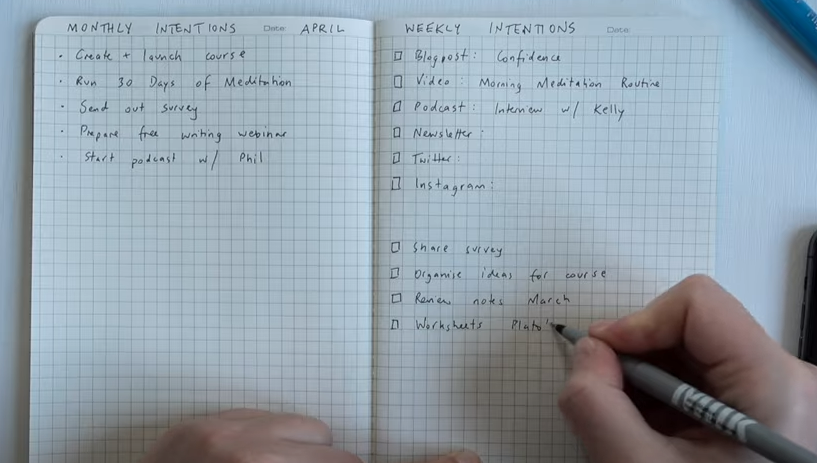 MONTHLY INTENTIONS Date: APRIL
· Create + launch course
· Run 30 Days of Meditation
· Send out survey
· Prepare free writing webinar
· Start podcast w/ Phil
WEEKLY INTENTIONS Date:
Blogpost: Confidence
Video: Morning Meditation Routine
Podcast: Interview w/ Kelly
Newsletter:
Twitter:
Instagram:
Share survey
Organise ideas for course
Review notes March
Worksheets Plato's